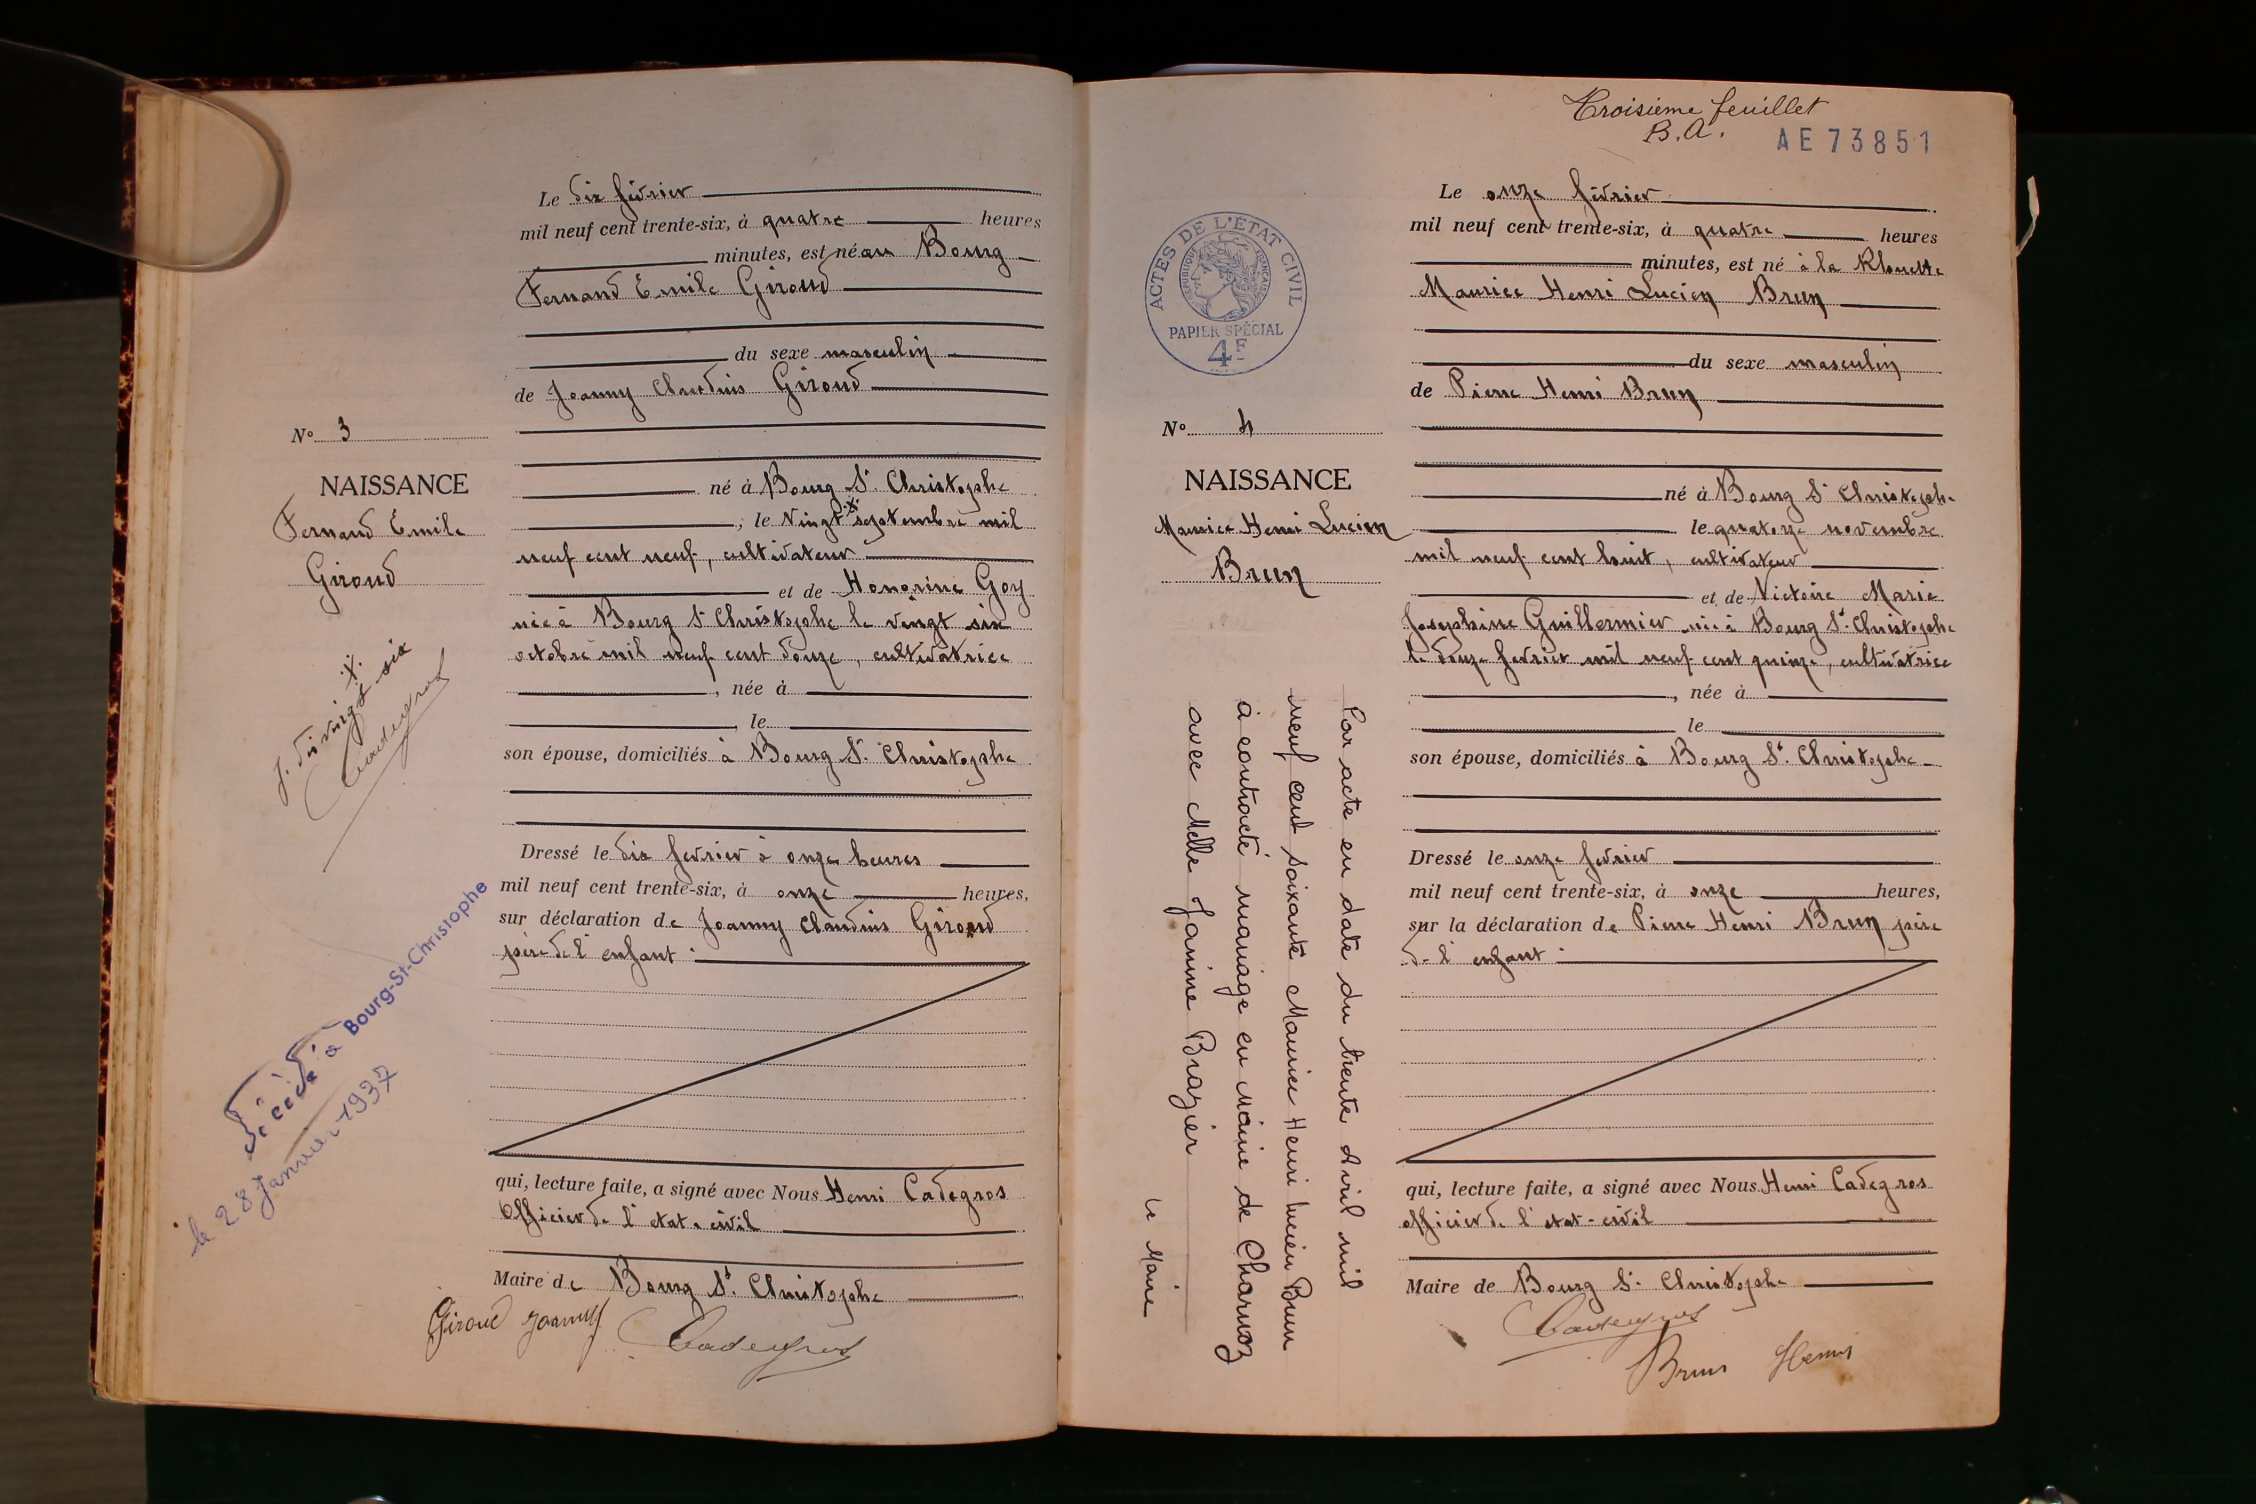 Le dix février
mil neuf cent trente-six, à quatre heures
minutes, est né au Bourg
Fernand Emile Giroud
du sexe masculin
de Joanny Claudius Giroud
né à Bourg St. Christophe
, le Vingt septembre mil
neuf cent neuf, cultivateur
et de Honorine Goy
née à Bourg St Christophe le vingt six
octobre mil neuf cent douze, cultivatrice
, née à
le
son épouse, domiciliés à Bourg St. Christophe
Dressé le dix fevrier à onze heures
mil neuf cent trente-six, à onze heures,
sur déclaration de Joanny Claudius Giroud
père de l'enfant
qui, lecture faite, a signé avec Nous Henri Cadegros
Officier de l'etat-civil
Maire de Bourg St. Christophe
Giroud Joanny Cadegros
No 3
NAISSANCE
Fernand Emile
Giroud
vingt six
Cadegros
Décédé à Bourg-St-Christophe
le 28 Janvier 1937
Troisième feuillet
B.A.
AE 73851
Le onze février
mil neuf cent trente-six, à quatre heures
minutes, est né à la
Maurice Henri Lucien Brun
du sexe masculin
de Pierre Henri Brun
né à Bourg St Christophe
le quatorze novembre
mil neuf cent huit, cultivateur
et de Victoire Marie
Josephine Guillermier née à Bourg St. Christophe
le douze fevrier mil neuf cent quinze, cultivatrice
, née à
le
son épouse, domiciliés à Bourg St. Christophe
Dressé le onze fevrier
mil neuf cent trente-six, à onze heures,
sur la déclaration de Pierre Henri Brun père
de l'enfant
qui, lecture faite, a signé avec Nous Henri Cadegros
officier de l'etat-civil
Maire de Bourg St. Christophe
Cadegros
Brun Henri
ACTES DE L'ÉTAT CIVIL
RÉPUBLIQUE FRANÇAISE
PAPIER SPÉCIAL
4F
No 4
NAISSANCE
Maurice Henri Lucien
Brun
Par acte en date du trente Avril mil
neuf cent soixante Maurice Henri Lucien Brun
à contracté mariage en Mairie de Charnoz
avec Melle Janine Brazier
Le Maire